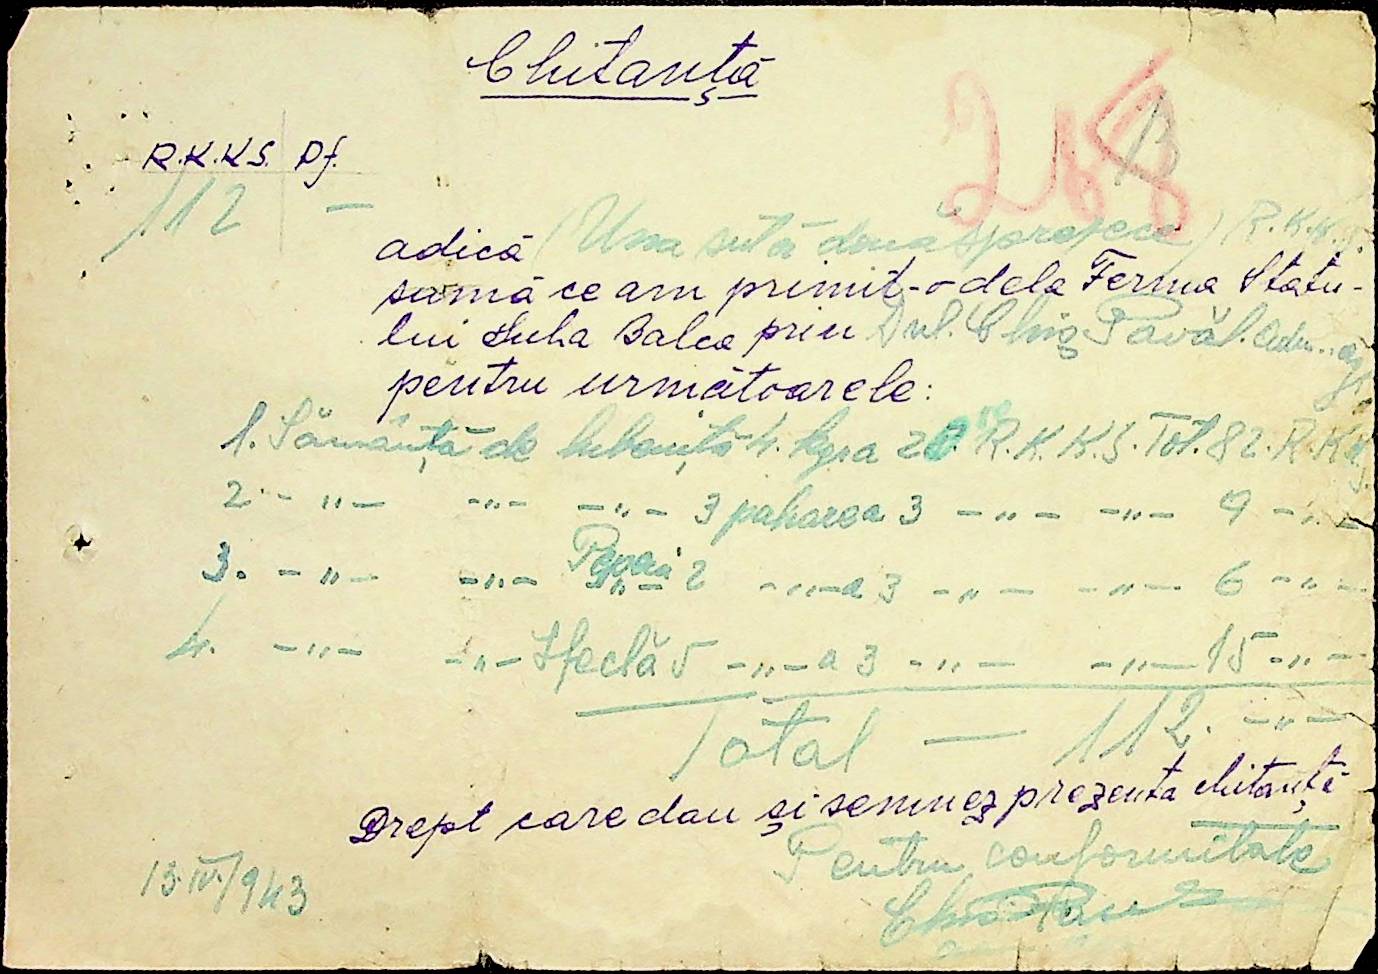 Chitanță
268
B
R.K.KS. Pf.
112 —
adică (Una sută douăsprezece) R.K.K.S.
sumă ce am primit-o dela Ferma Statu-
lui Suha Balca prin Dnl. Chiș Pavăl. Adm. ag.
pentru următoarele:
1. Sămânță de lubeniță 4. kgr a 20 R.K.K.S. Tot. 82. R.K.K.S.
2. -"- -"- -"- 3 pahare a 3 -"- -"- 9 -"-
3. -"- -"- Pepeni 2 -"- a 3 -"- -"- 6 -"-
4. -"- -"- Sfeclă 5 -"- a 3 -"- -"- 15 -"-
Total — 112. -"-
Drept care dau și semnez prezenta chitanță
Pentru conformitate
13.IV./943